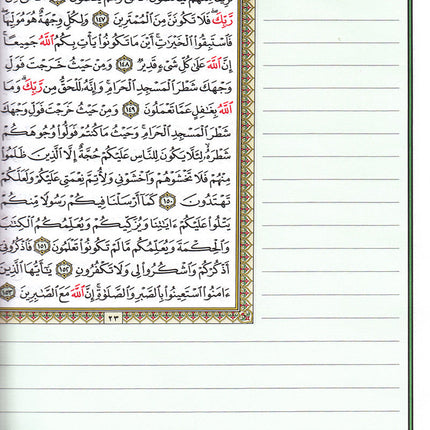 رَبِّكَ فَلَا تَكُونَنَّ مِنَ ٱلْمُمْتَرِينَ ١٤٧ وَلِكُلٍّ وِجْهَةٌ هُوَ مُوَلِّيهَا
فَٱسْتَبِقُوا۟ ٱلْخَيْرَٰتِ أَيْنَ مَا تَكُونُوا۟ يَأْتِ بِكُمُ ٱللَّهُ جَمِيعًا
إِنَّ ٱللَّهَ عَلَىٰ كُلِّ شَىْءٍ قَدِيرٌ ١٤٨ وَمِنْ حَيْثُ خَرَجْتَ فَوَلِّ
وَجْهَكَ شَطْرَ ٱلْمَسْجِدِ ٱلْحَرَامِ وَإِنَّهُۥ لَلْحَقُّ مِن رَّبِّكَ وَمَا
ٱللَّهُ بِغَٰفِلٍ عَمَّا تَعْمَلُونَ ١٤٩ وَمِنْ حَيْثُ خَرَجْتَ فَوَلِّ وَجْهَكَ
شَطْرَ ٱلْمَسْجِدِ ٱلْحَرَامِ وَحَيْثُ مَا كُنتُمْ فَوَلُّوا۟ وُجُوهَكُمْ
شَطْرَهُۥ لِئَلَّا يَكُونَ لِلنَّاسِ عَلَيْكُمْ حُجَّةٌ إِلَّا ٱلَّذِينَ ظَلَمُوا۟
مِنْهُمْ فَلَا تَخْشَوْهُمْ وَٱخْشَوْنِى وَلِأُتِمَّ نِعْمَتِى عَلَيْكُمْ وَلَعَلَّكُمْ
تَهْتَدُونَ ١٥٠ كَمَآ أَرْسَلْنَا فِيكُمْ رَسُولًا مِّنكُمْ
يَتْلُوا۟ عَلَيْكُمْ ءَايَٰتِنَا وَيُزَكِّيكُمْ وَيُعَلِّمُكُمُ ٱلْكِتَٰبَ
وَٱلْحِكْمَةَ وَيُعَلِّمُكُم مَّا لَمْ تَكُونُوا۟ تَعْلَمُونَ ١٥١ فَٱذْكُرُونِىٓ
أَذْكُرْكُمْ وَٱشْكُرُوا۟ لِى وَلَا تَكْفُرُونِ ١٥٢ يَٰٓأَيُّهَا ٱلَّذِينَ
ءَامَنُوا۟ ٱسْتَعِينُوا۟ بِٱلصَّبْرِ وَٱلصَّلَوٰةِ إِنَّ ٱللَّهَ مَعَ ٱلصَّٰبِرِينَ ١٥٣
٢٣